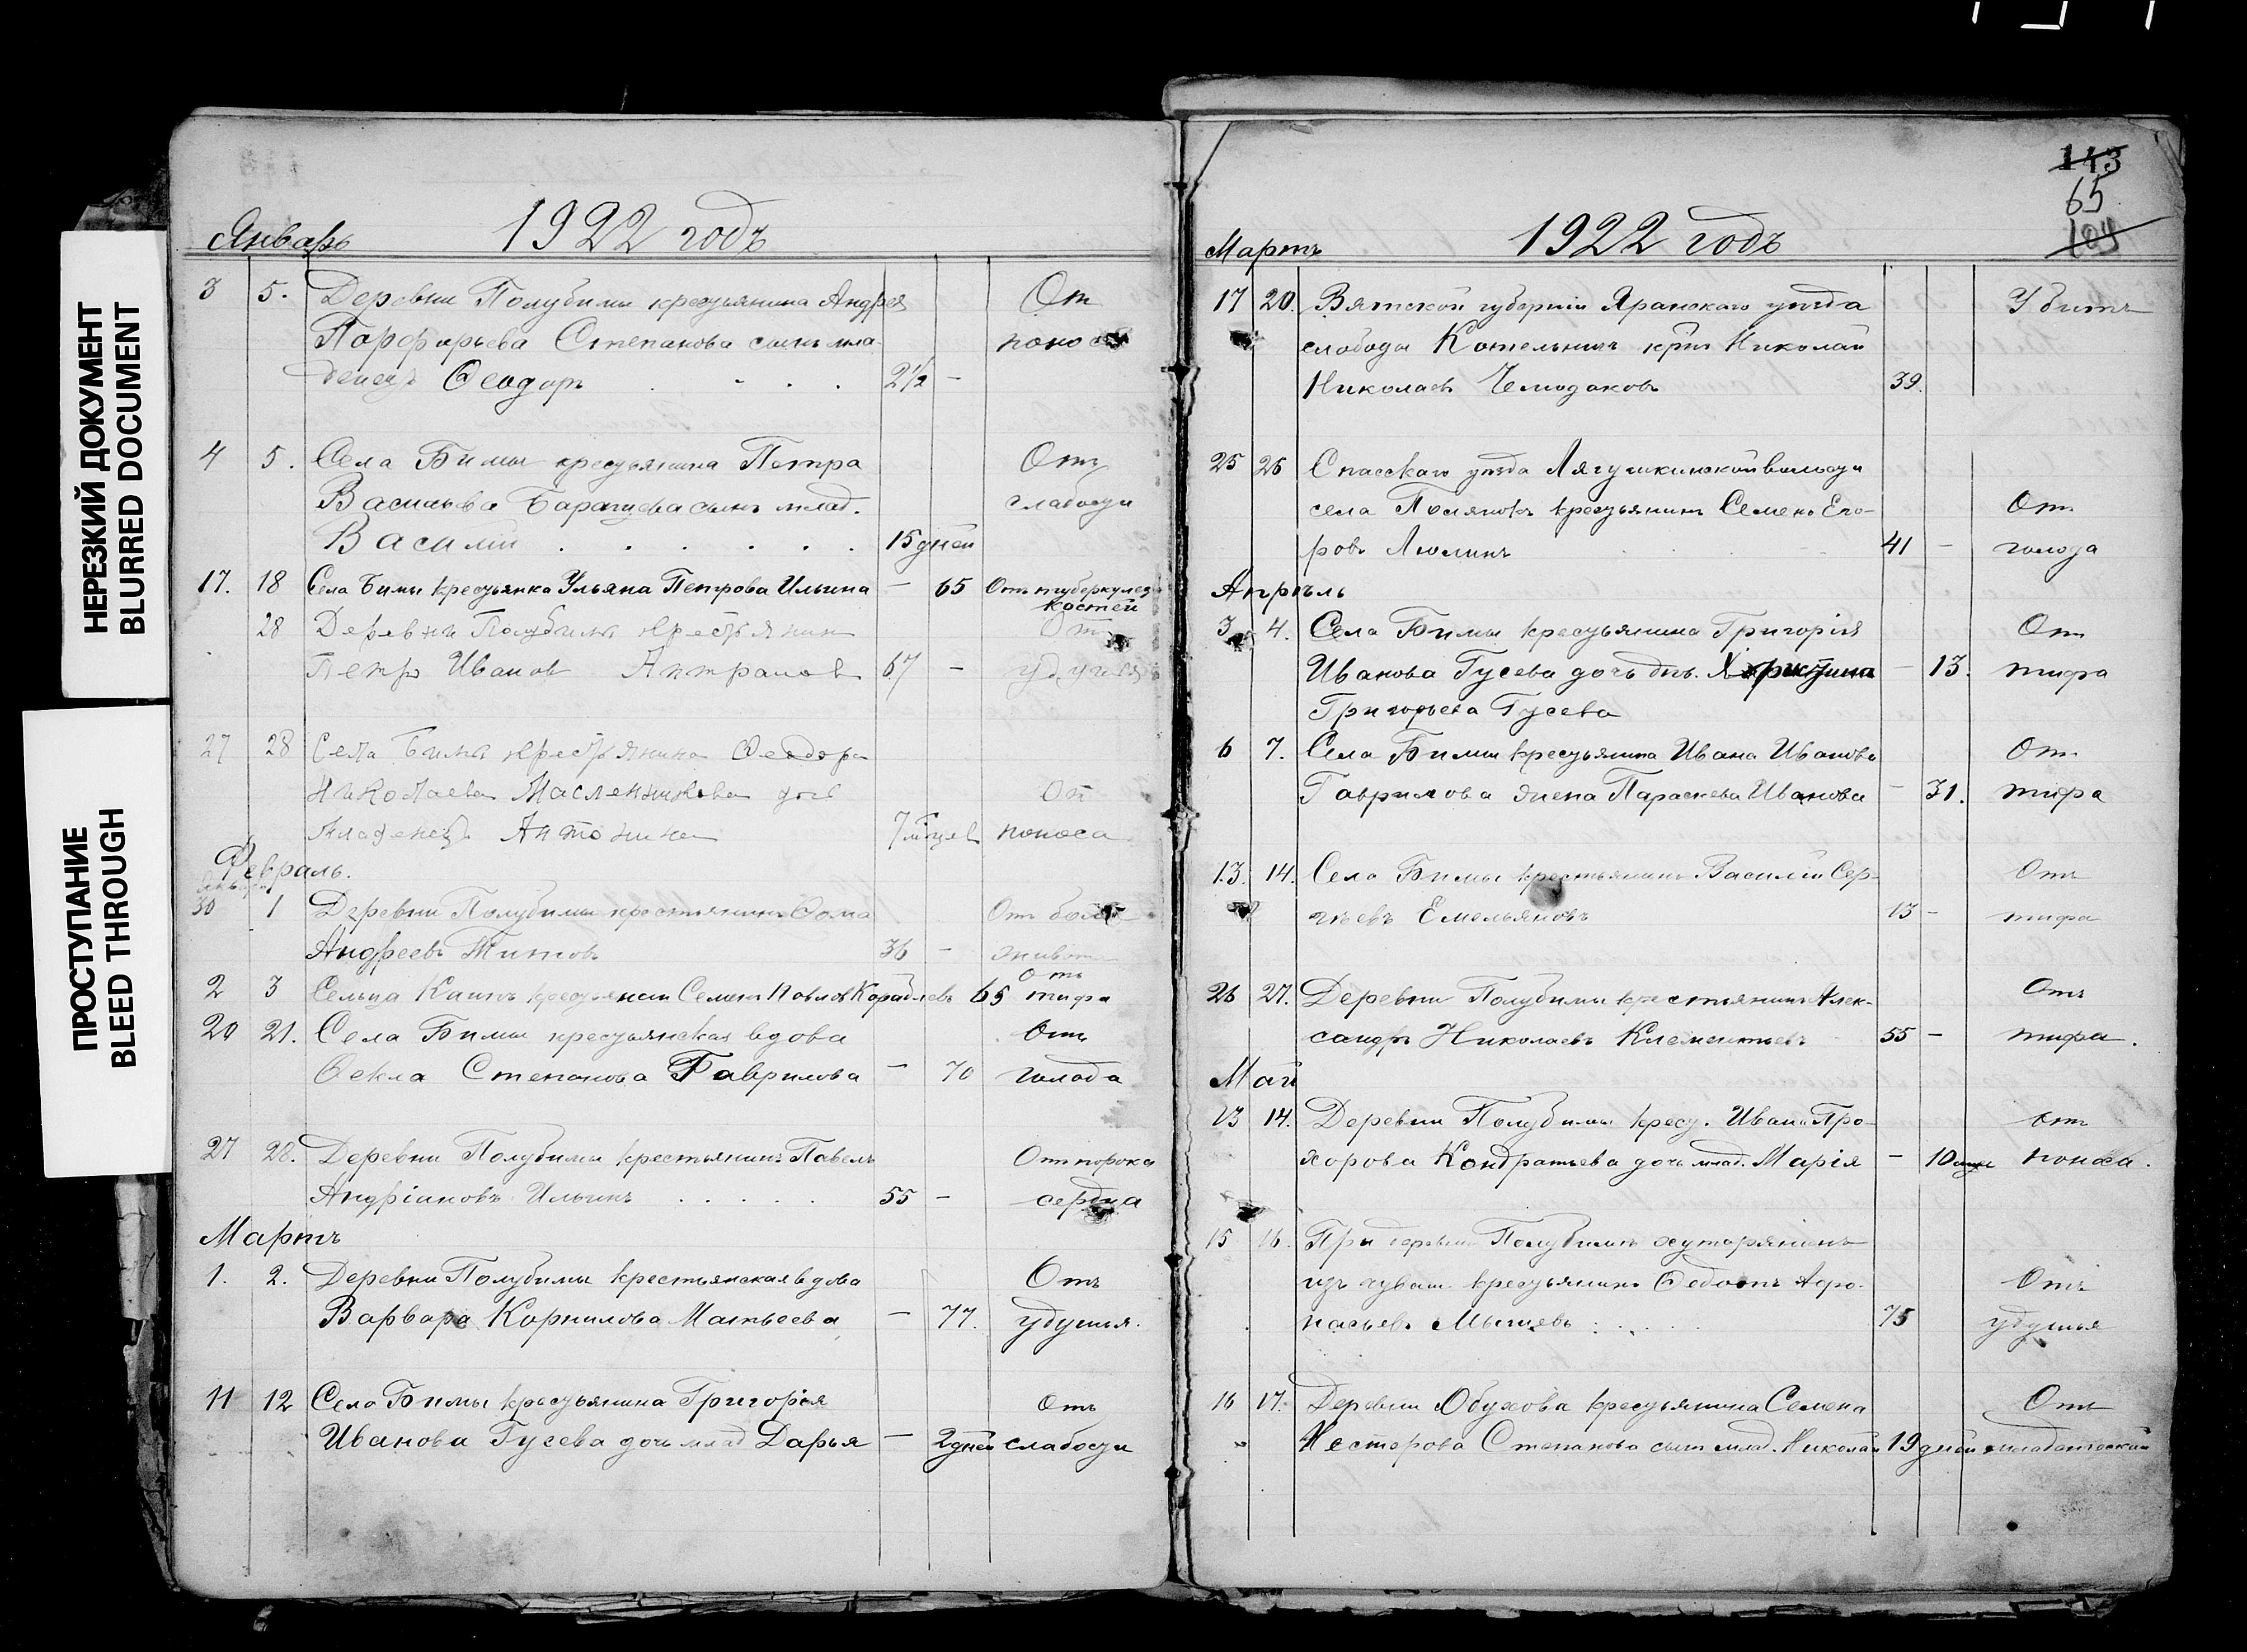 НЕРЕЗКИЙ ДОКУМЕНТ
BLURRED DOCUMENT
ПРОСТУПАНИЕ
BLEED THROUGH
Январь 1922 годъ
3 5. Деревни Полубимы крестьянина Андрея От
Порфирьева Степанова сынъ мла- поноса
денецъ Ѳеодоръ . . . . 2½ —
4 5. Села Бимы крестьянина Петра Отъ
Васильева сынъ млад. слабости
Василій . . . . . . 15 дней
17. 18 Села Бимы крестьянка Ульяна Петрова Ильина — 65 Отъ туберкулеза
костей
28 Деревни Полубимы крестьянин От
Петр Иванов 67 — удушья
27 28 Села Бимы крестьянина Феодора
Николаева Масленникова дочь От
младенецъ Антонина 7 месяцев поноса
Февраль.
Января
30 1 Деревни Полубимы крестьянинъ Ѳома Отъ боли
Андреевъ Титовъ 36 — живота
Отъ
2 3 Сельца крестьянин Семенъ Павлов Кораблевъ 65 тифа
20 21. Села Бимы крестьянская вдова Отъ
Ѳекла Степанова Гаврилова — 70 голода
27 28. Деревни Полубимы крестьянинъ Павелъ Отъ порока
Андріановъ Ильинъ . . . . . 55 — сердца
Мартъ
1. 2. Деревни Полубимы крестьянская вдова Отъ
Варвара Корнилова Матвеева — 77. удушья.
11 12 Села Бимы крестьянина Григорія Отъ
Иванова Гусева дочь млад Дарья — 2 дней слабости
143
65
104
Мартъ 1922 годъ
17 20. Вятской губерніи Яранскаго уѣзда Убитъ
слободы кр-нъ Николай
Николаевъ Чемодановъ 39.
25 26 Спасскаго уѣзда Лягушкинской волости
села Полянокъ крестьянинъ Семенъ Его- Отъ
ровъ Люлинъ 41 — голода
Апрѣль
3 4. Села Бимы крестьянина Григорія От
Иванова Гусева дочь дѣв. Христина — 13. тифа
Григорьева Гусева
6 7. Села Бимы крестьянина Ивана Иванова От
Гаврилова жена Параскева Иванова — 31. тифа
13. 14. Села Бимы крестьянинъ Василій Сер- Отъ
гѣевъ Емельяновъ 13 — тифа
26 27. Деревни Полубимы крестьянинъ Алек- Отъ
сандръ Николаевъ Клементьевъ 55 — тифа.
Май
13 14. Деревни Полубимы крест. Ивана Про- отъ
хорова Кондратьева дочь млад. Марія — 10 поноса.
15 16. При деревни Полубимахъ хуторянинъ
изъ чуваш. крестьянинъ Ѳедотъ Афо- Отъ
насьевъ . . . . 75 удушья
16 17. Деревни Обухова крестьянина Семена Отъ
Нестерова Степанова сынъ млад. Николай 19 дней младенческой